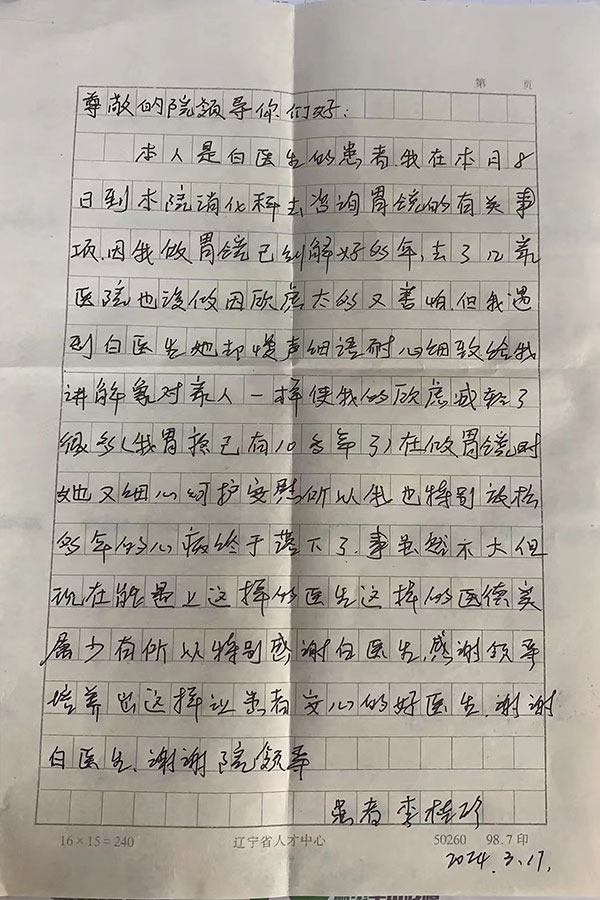 第 页
尊敬的院领导你们好:
本人是白医生的患者.我在本月8
日到本院消化科去咨询胃镜的有关事
项.因我做胃镜已纠解好多年,去了几家
医院也没做因顾虑太多又害怕.但我遇
到白医生她却慢声细语耐心细致给我
讲解象对家人一样使我的顾虑减轻了
很多(我胃疼已有10多年了)在做胃镜时
她又细心呵护安慰所以我也特别放松
多年的心病终于落下了.事虽然不大但
现在能遇上这样的医生这样的医德实
属少有所以特别感谢白医生,感谢领导
培养出这样让患者安心的好医生.谢谢
白医生.谢谢院领导
患者 李桂珍
16×15=240 辽宁省人才中心 50260 98.7印
2024.3.17.